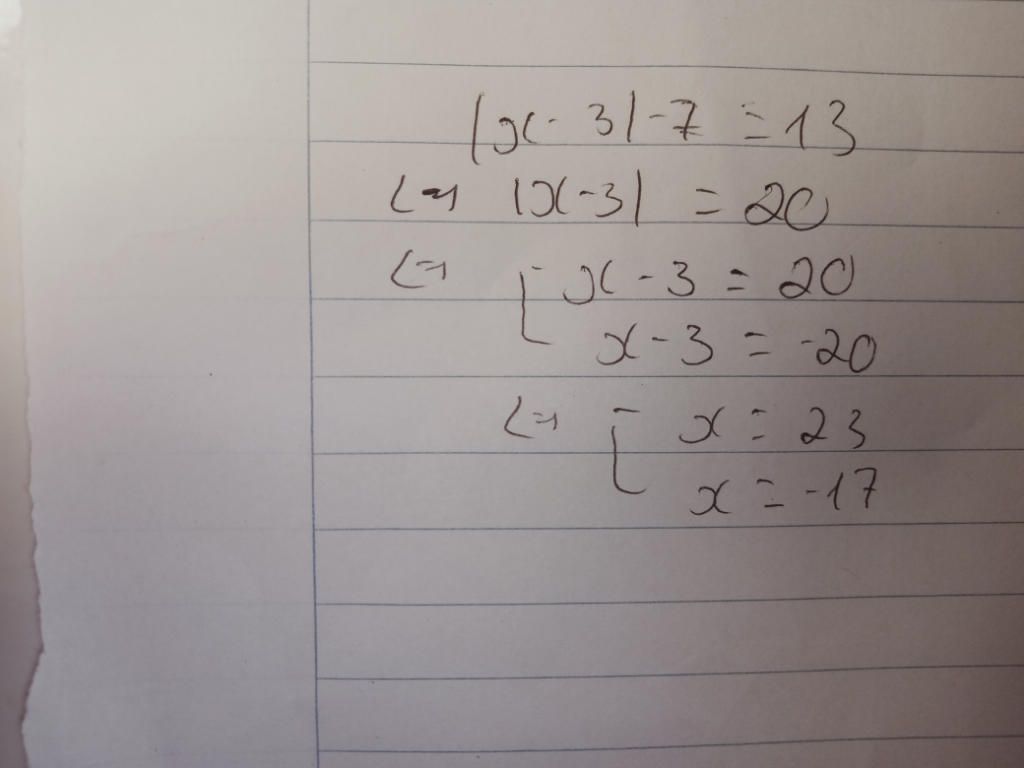 |x - 3| - 7 = 13
<=> |x - 3| = 20
<=> [ x - 3 = 20
x - 3 = -20
<=> [ x = 23
x = -17